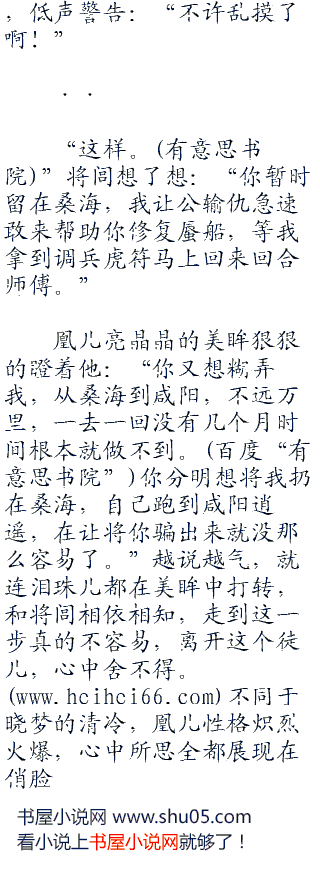 ，低声警告：“不许乱摸了
啊！”
．．
“这样。(有意思书
院)”将闾想了想：“你暂时
留在桑海，我让公输仇急速
敢来帮助你修复蜃船，等我
拿到调兵虎符马上回来回合
师傅。”
凰儿亮晶晶的美眸狠狠
的瞪着他：“你又想糊弄
我，从桑海到咸阳，不远万
里，一去一回没有几个月时
间根本就做不到。(百度“有
意思书院”)你分明想将我扔
在桑海，自己跑到咸阳逍
遥，在让将你骗出来就没那
么容易了。”越说越气，就
连泪珠儿都在美眸中打转，
和将闾相依相知，走到这一
步真的不容易，离开这个徒
儿，心中舍不得。
(www.hcihci66.com)不同于
晓梦的清冷，凰儿性格炽烈
火爆，心中所思全都展现在
俏脸
书屋小说网 www.shu05.com
看小说上书屋小说网就够了！